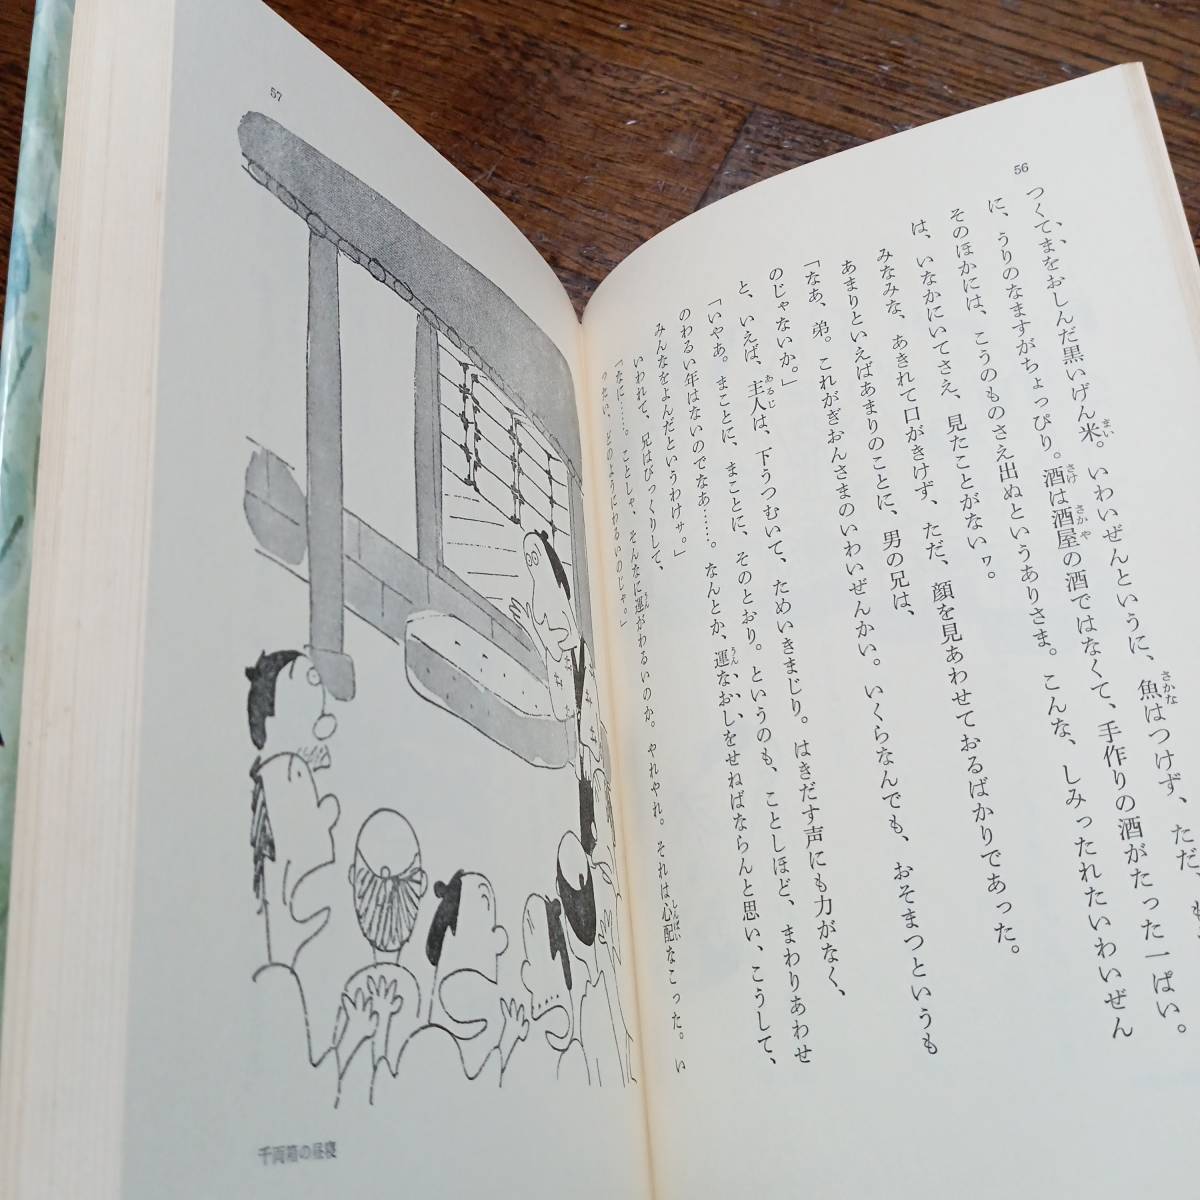 56
つくて、まをおしんだ黒いげん米。いわいぜんというに、魚はつけず、ただ、も
に、うりのなますがちょっぴり。酒は酒屋の酒ではなくて、手作りの酒がたった一ぱい。
そのほかには、こうのものさえ出ぬというありさま。こんな、しみったれたいわいぜん
は、いなかにいてさえ、見たことがないヮ。
みなみな、あきれて口がきけず、ただ、顔を見あわせておるばかりであった。
あまりといえばあまりのことに、男の兄は、
「なあ、弟。これがぎおんさまのいわいぜんかい。いくらなんでも、おそまつというも
のじゃないか。」
と、いえば、主人は、下うつむいて、ためいきまじり。はきだす声にも力がなく、
「いやあ。まことに、まことに、そのとおり。というのも、ことしほど、まわりあわせ
のわるい年はないのでなあ……。なんとか、運なおしをせねばならんと思い、こうして、
みんなをよんだというわけサ。」
いわれて、兄はびっくりして、
「なに……。ことしゃ、そんなに運がわるいのか。やれやれ。それは心配なこった。い
ったい、どのようにわるいのじゃ。」
57
千両箱の昼寝